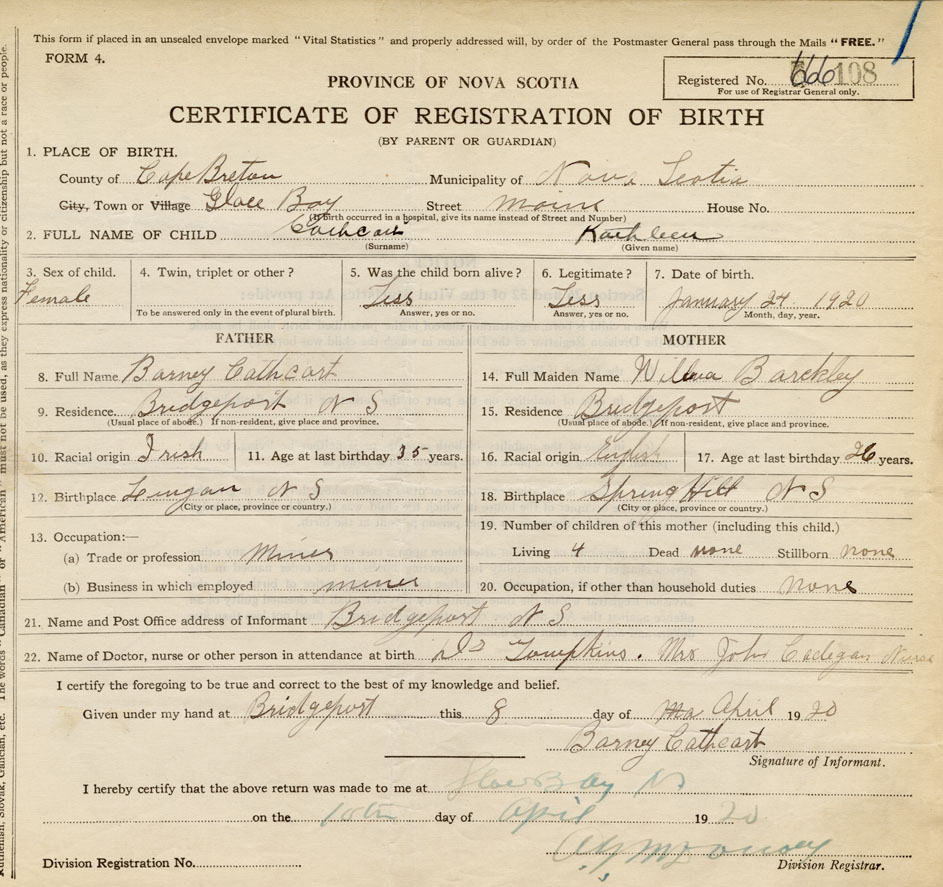 This form if placed in an unsealed envelope marked "Vital Statistics" and properly addressed will, by order of the Postmaster General pass through the Mails "FREE."
FORM 4.
Registered No. 108
For use of Registrar General only.
PROVINCE OF NOVA SCOTIA
CERTIFICATE OF REGISTRATION OF BIRTH
(BY PARENT OR GUARDIAN)
1. PLACE OF BIRTH.
County of Cape Breton Municipality of Nova Scotia
City, Town or Village Glace Bay Street Maine House No.
(If birth occurred in a hospital, give its name instead of Street and Number)
2. FULL NAME OF CHILD Cathcart Kathleen
(Surname) (Given name)
3. Sex of child. 4. Twin, triplet or other? 5. Was the child born alive? 6. Legitimate? 7. Date of birth.
Female Yess Yess January 24 1920
To be answered only in the event of plural birth. Answer, yes or no. Answer, yes or no. Month, day, year.
FATHER MOTHER
8. Full Name Barney Cathcart 14. Full Maiden Name Wilma Barckley
9. Residence. Bridgeport N S 15. Residence Bridgeport
(Usual place of abode.) If non-resident, give place and province. (Usual place of abode.) If non-resident, give place and province.
10. Racial origin Irish 11. Age at last birthday 35 years. 16. Racial origin English 17. Age at last birthday 26 years.
12. Birthplace Lingan N S 18. Birthplace Spring Hill N S
(City or place, province or country.) (City or place, province or country.)
13. Occupation:— 19. Number of children of this mother (including this child.)
(a) Trade or profession Miner Living 4 Dead none Stillborn none
(b) Business in which employed miner 20. Occupation, if other than household duties none
21. Name and Post Office address of Informant Bridgeport N S
22. Name of Doctor, nurse or other person in attendance at birth Dr Tompkins. Mrs John Cadegan Nurse
I certify the foregoing to be true and correct to the best of my knowledge and belief.
Given under my hand at Bridgeport this 8 day of Ma April 1920
Barney Cathcart
Signature of Informant.
I hereby certify that the above return was made to me at Glace Bay NS
on the 10th day of April 1920
Division Registration No. Division Registrar.
Ruthenian, Slovak, Galician, etc. The words "Canadian" or "American" must not be used, as they express nationality or citizenship but not a race or people.